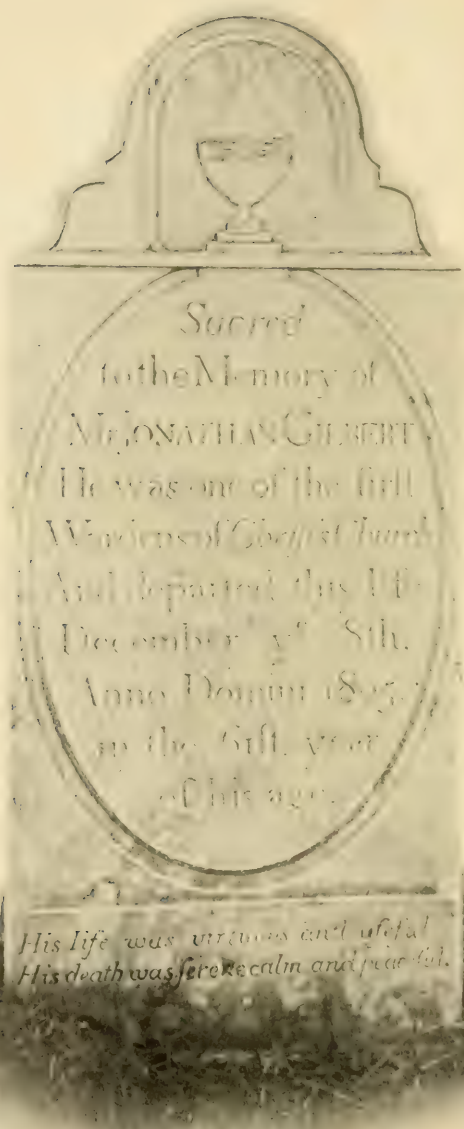 Sacred
to the Memory of
Mr. JONATHAN GILBERT
He was one of the first
Wardens of Christ Church
And departed this life
December yᵉ 8th.
Anno Domini
in the 61ſt. year
of his age.
His life was virtuous and uſeful
His death was ſerene calm and peaceful.